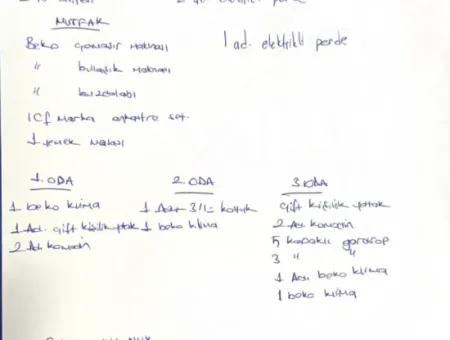 MUTFAK
Beko çamaşır makinası
" bulaşık makinası
" buzdolabı
1 ad. elektrikli perde
ICF marka set.
1 yemek masası
1. ODA
1 beko klima
1 Ad. çift kişilik yatak
2 Ad. komodin
2. ODA
1 Adet 3/1 koltuk
1 beko klima
3. ODA
çift kişilik yatak
2 Ad. komodin
5 kapaklı gardırop
3 " "
1 Ad. beko klima
1 beko klima